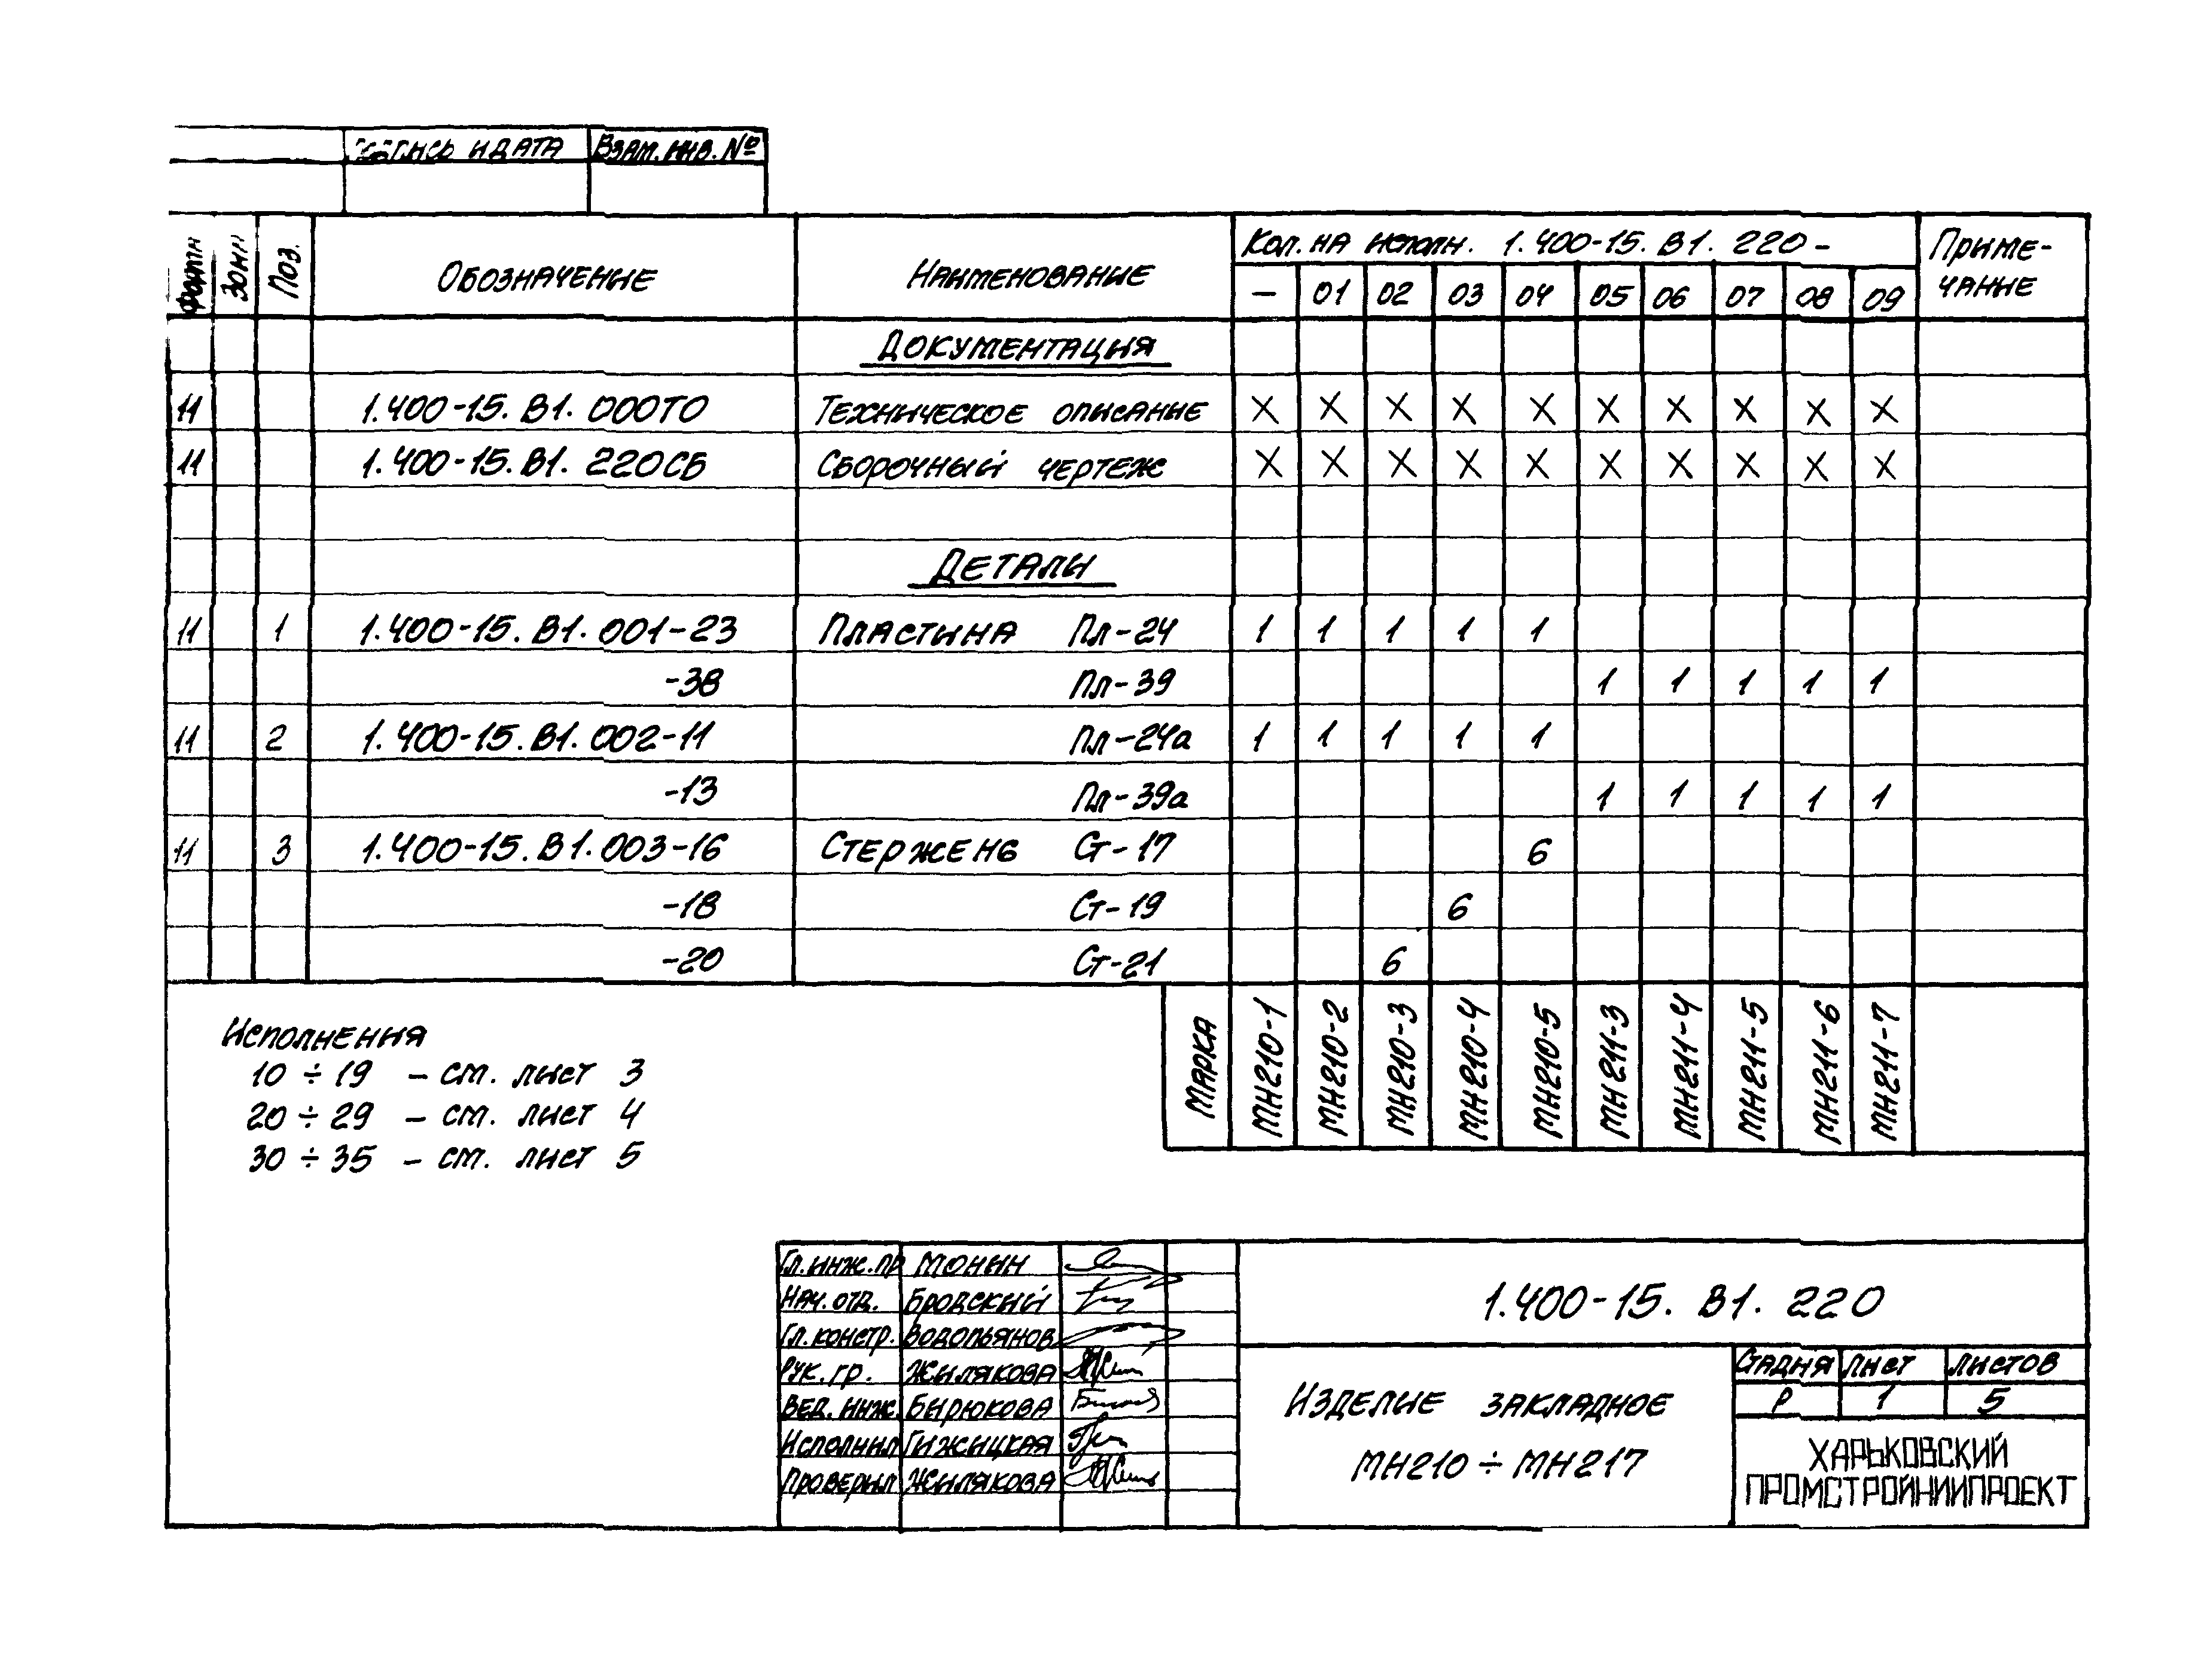 Подпись и дата Взам. инв. №
Форм Зона Поз. Обозначение Наименование Кол. на исполн. 1.400-15.В1.220- Приме-
чание
– 01 02 03 04 05 06 07 08 09
Документация
11 1.400-15.В1.000ТО Техническое описание X X X X X X X X X X
11 1.400-15.В1.220СБ Сборочный чертеж X X X X X X X X X X
Детали
11 1 1.400-15.В1.001-23 Пластина Пл-24 1 1 1 1 1
-38 Пл-39 1 1 1 1 1
11 2 1.400-15.В1.002-11 Пл-24а 1 1 1 1 1
-13 Пл-39а 1 1 1 1 1
11 3 1.400-15.В1.003-16 Стержень Ст-17 6
-18 Ст-19 6
-20 Ст-21 6
Марка МН210-1 МН210-2 МН210-3 МН210-4 МН210-5 МН211-3 МН211-4 МН211-5 МН211-6 МН211-7
Исполнения
10 ÷ 19 – см. лист 3
20 ÷ 29 – см. лист 4
30 ÷ 35 – см. лист 5
Гл. инж. пр Монин
Нач. отд. Бродский
Гл. констр. Водопьянов
Рук. гр. Жилякова
Вед. инж. Бирюкова
Исполнил Гижицкая
Проверил Жилякова
1.400-15.В1.220
Изделие закладное
МН210 ÷ МН217
Стадия Лист Листов
Р 1 5
ХАРЬКОВСКИЙ
ПРОМСТРОЙНИИПРОЕКТ